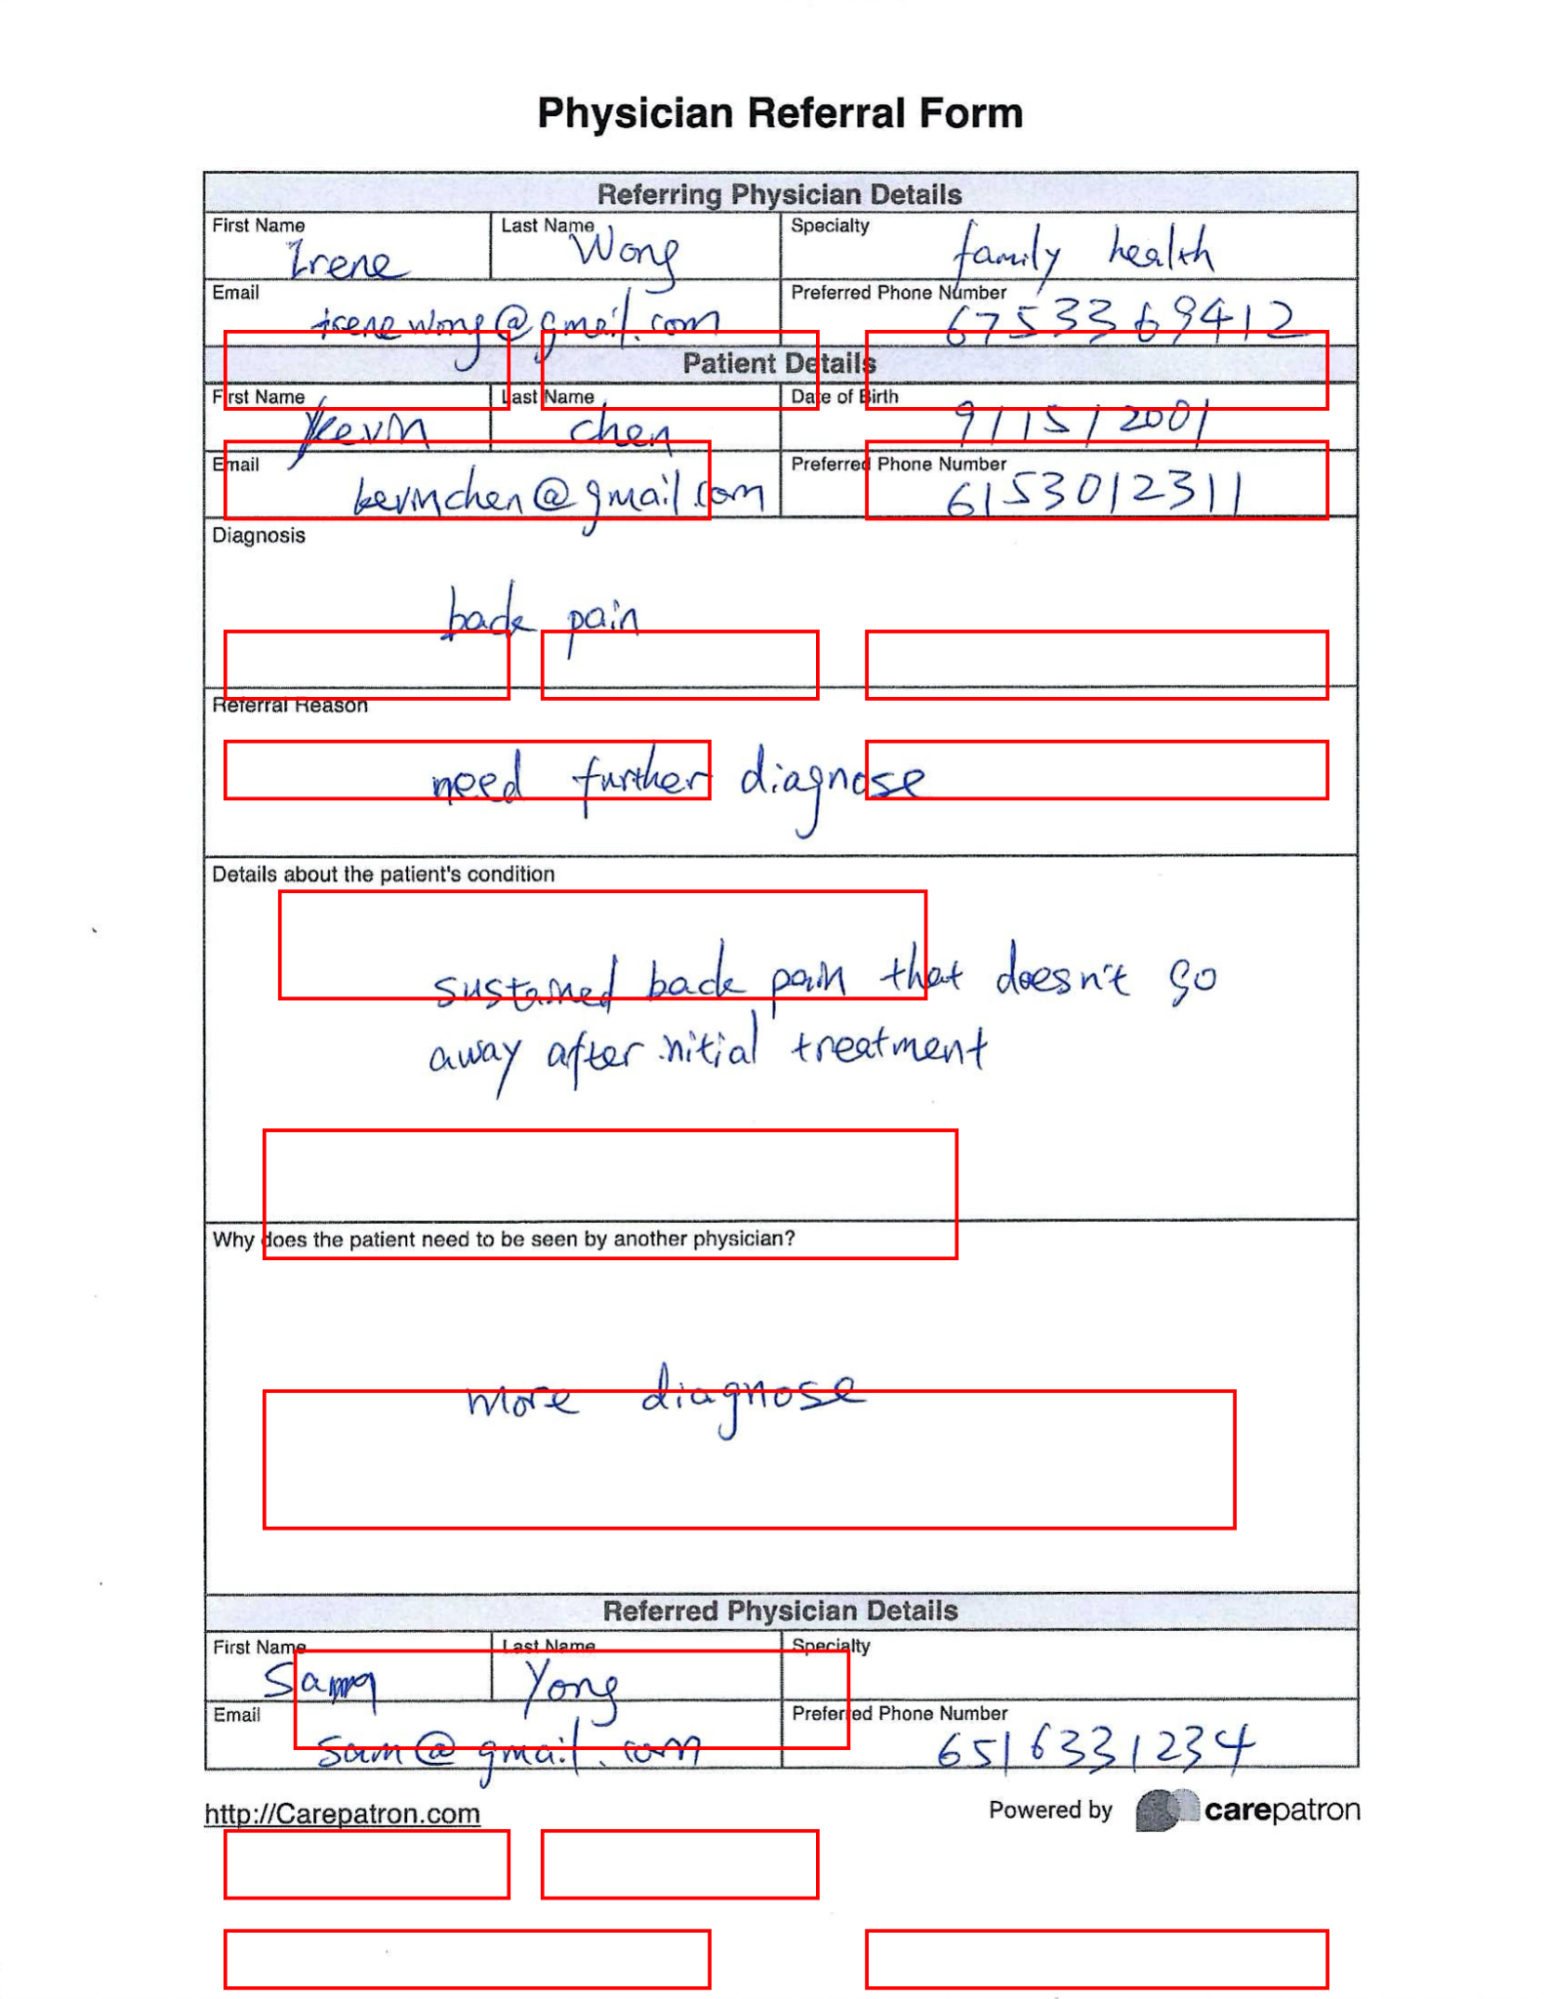 Physician Referral Form
Referring Physician Details
First Name Last Name Specialty
Irene Wong family health
Email Preferred Phone Number
irenewong@gmail.com 6753369412
Patient Details
First Name Last Name Date of Birth
Kevin chen 9/15/2001
Email Preferred Phone Number
kevinchen@gmail.com 6153012311
Diagnosis
back pain
Referral Reason
need further diagnose
Details about the patient's condition
sustained back pain that doesn't go
away after initial treatment
Why does the patient need to be seen by another physician?
more diagnose
Referred Physician Details
First Name Last Name Specialty
Yong
Email Preferred Phone Number
sam@gmail.com 6516331234
http://Carepatron.com Powered by carepatron